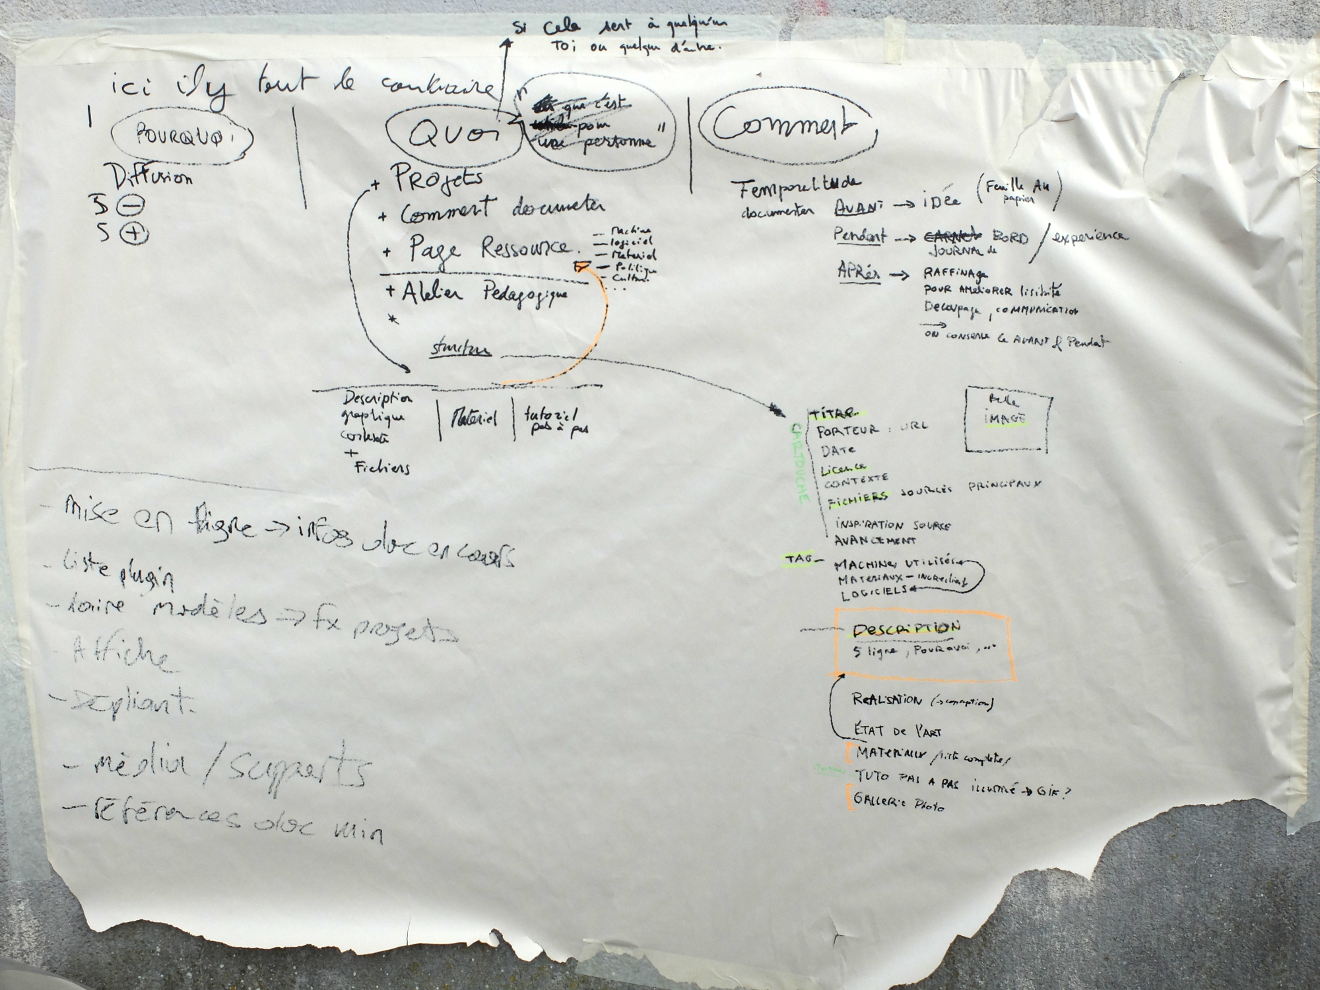 si cela sert à quelqu'un
toi ou quelqu'un d'autre.
ici il y tout le contraire
POURQUOI
Diffusion
5 -
5 +
QUOI
que c'est
pour
une personne "
+ PROJETS
+ Comment documenter
+ Page Ressource.
- Machine
- logiciel
- Matériel
- Politique
- Culture
...
+ Atelier Pédagogique
*
structure
Description
graphique
contexte
+
Fichiers
Matériel
tutoriel
pas à pas
Comment
Temporalité de
documenter
AVANT → IDÉE (Feuille au
papier)
Pendant → CARNET BORD / experience
JOURNAL de
APRÈS → RAFFINAGE
POUR AMELIORER lisibilité
Decoupage, COMMUNICATION
→ ON CONSERVE le AVANT & Pendant
CARTOUCHE
TITRE
PORTEUR : URL
DATE
Licence
CONTEXTE
FICHIERS SOURCES PRINCIPAUX
INSPIRATION SOURCE
AVANCEMENT
Belle
IMAGE
TAG - MACHINES UTILISÉES
MATERIAUX - INGREDIENT
LOGICIELS
DESCRIPTION
5 ligne, POURQUOI, ...
REALISATION (→ conception)
ÉTAT DE l'ART
MATERIAUX /liste complète/
TUTO PAS A PAS illustré → GIF ?
GALLERIE Photo
- mise en ligne → infos doc en cours
- Liste plugin
- faire modèles → fx projets
- Affiche
- Dépliant.
- média / supports
- références doc min